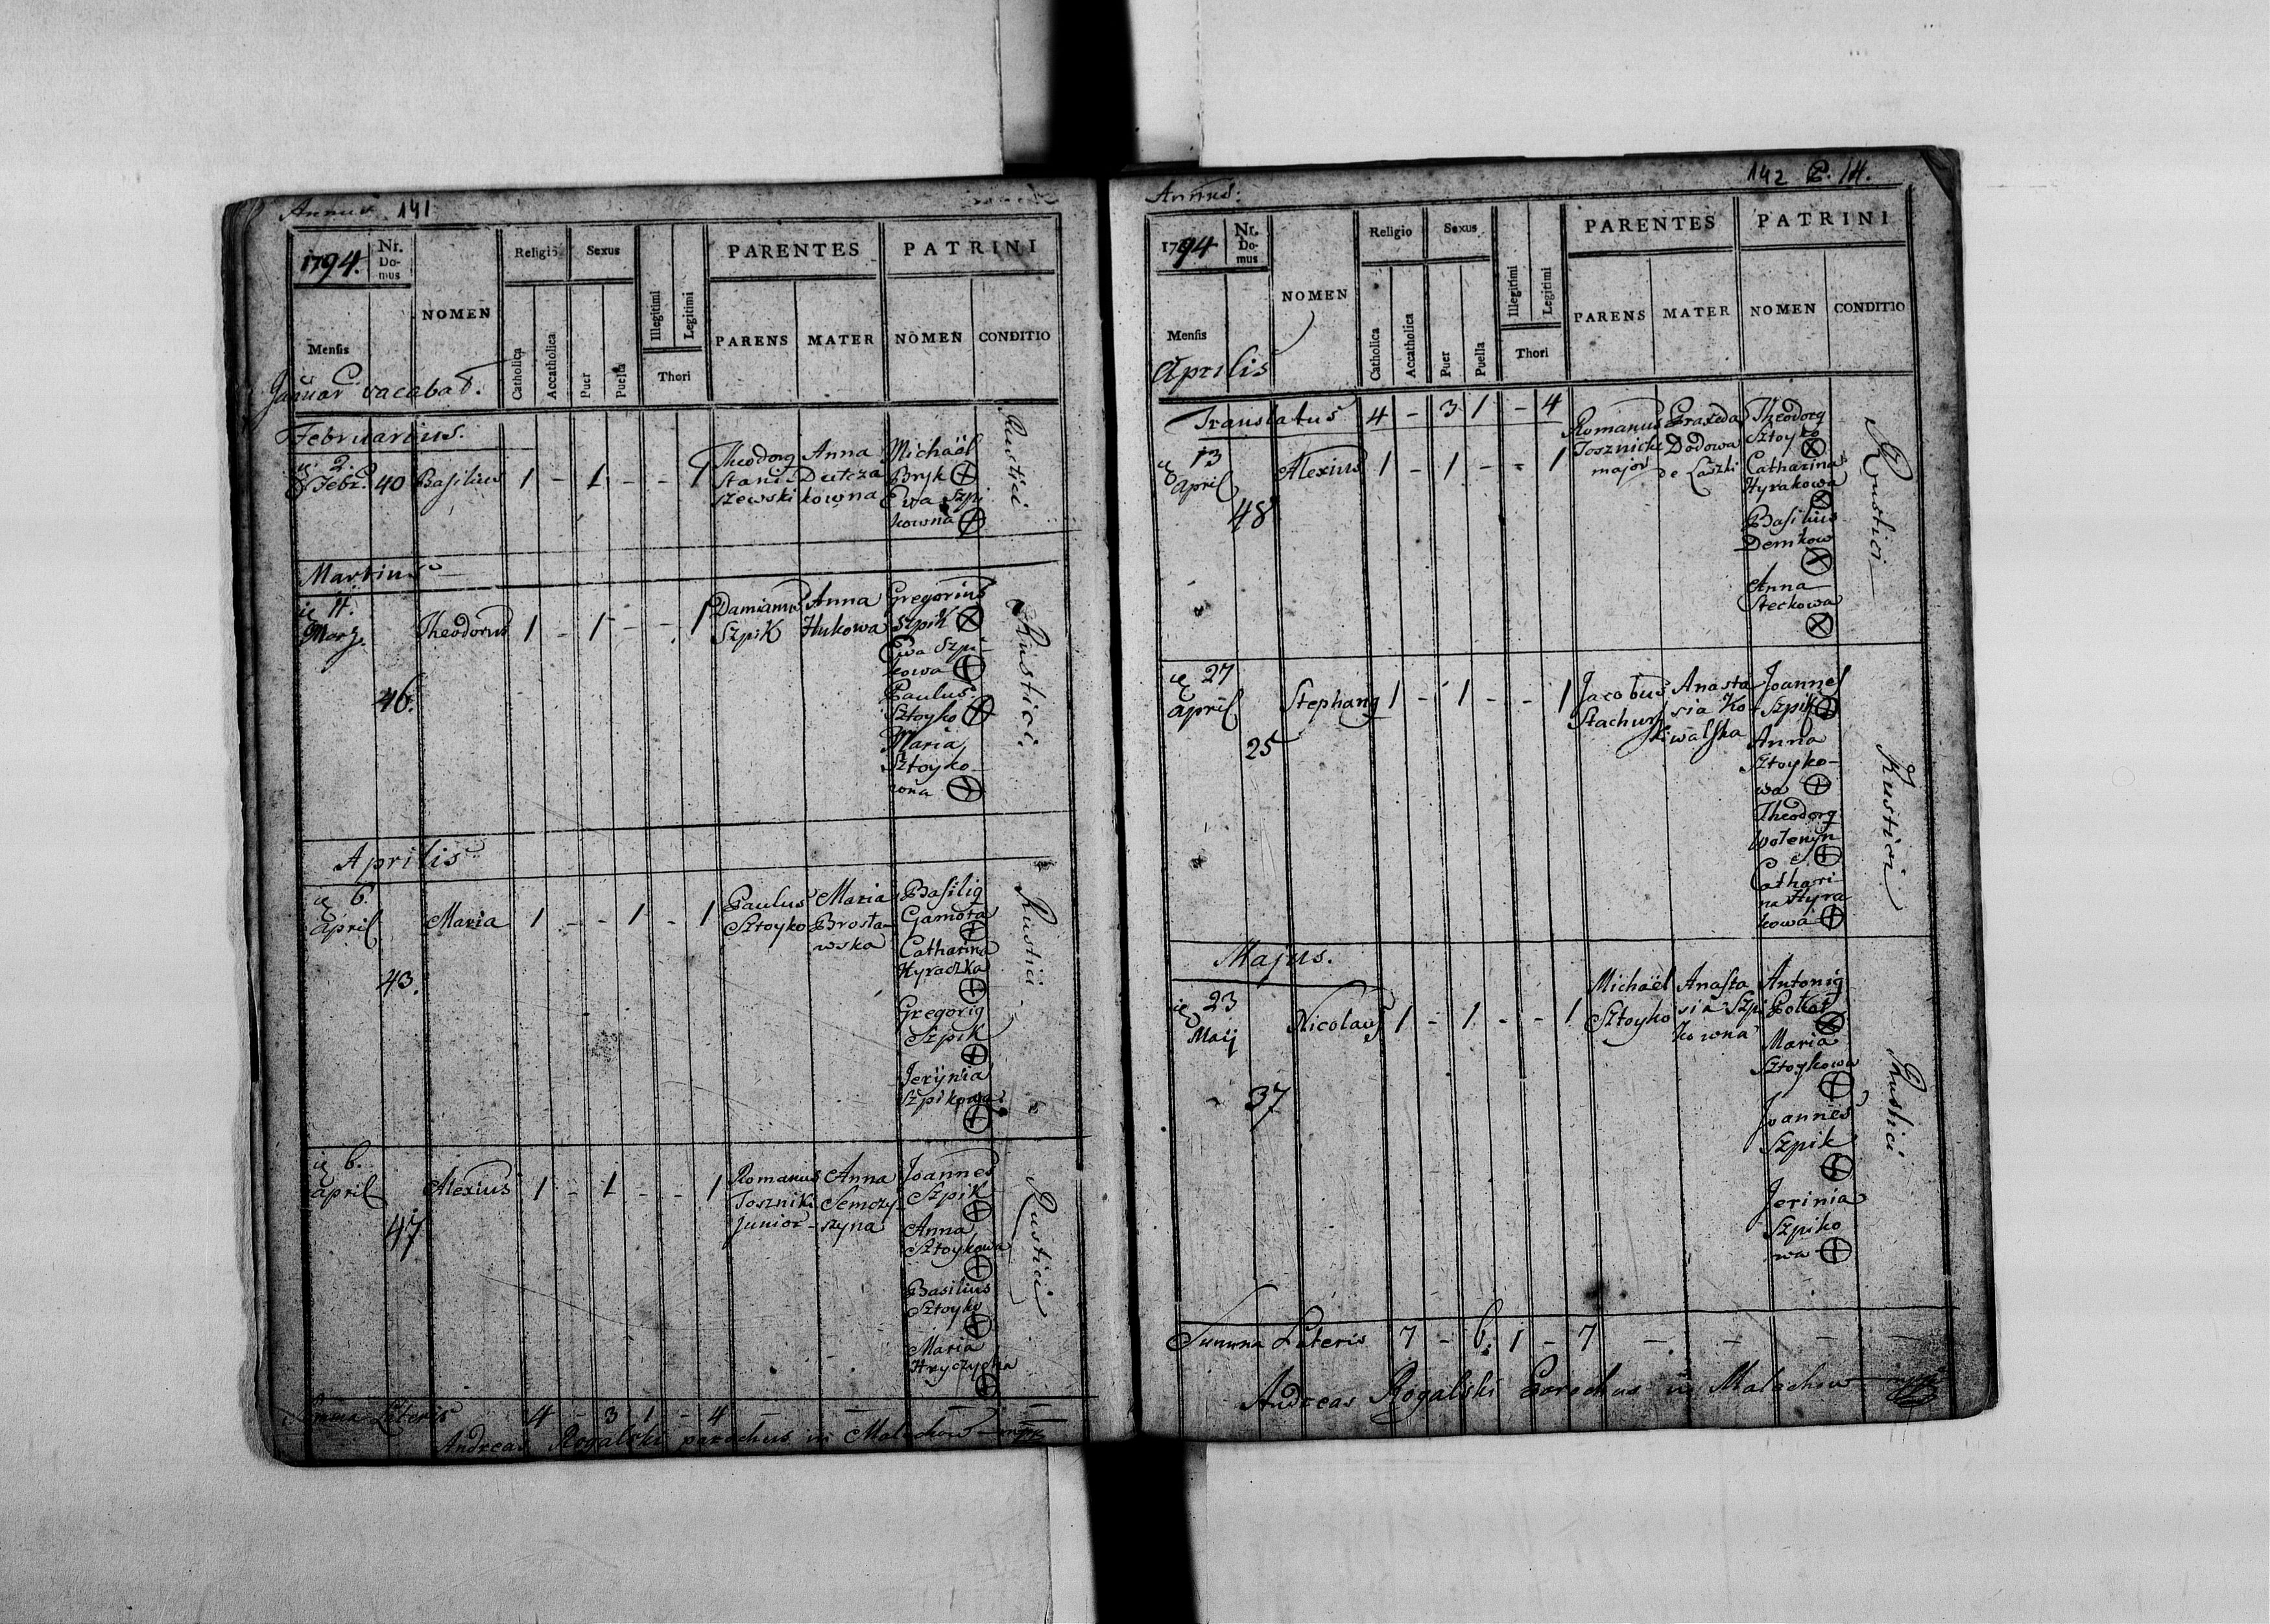 Annus 141
1794.
Nr. Do-mus
NOMEN
Religio
Sexus
Illegitimi
Legitimi
PARENTES
PATRINI
Mensis
Catholica
Accatholica
Puer
Puella
Thori
PARENS
MATER
NOMEN
CONDITIO
Januar vacabat.
Februarius.
2.
Febr. 40 Basilius 1 - 1 - - 1
Theodorg
Stani-
szewski
Anna
Dutcza
kowna
Michaël
Bryk
Ewa Szpi
kowna
Rustici
Martius
11.
Marz.
46.
Theodorus 1 - 1 - - 1
Damianus
Szpik
Anna
Hukowa
Gregorius
Szpik
Ewa Szpi-
kowa
Paulus
Sztoyko
Maria
Sztoyko-
wna
Rustici.
Aprilis
6.
April
43.
Maria 1 - - 1 - 1
Paulus
Sztoyko
Maria
Brosta-
wska
Basilig
Gamota
Catharina
Hyraczka
Gregorig
Szpik
Jerynia
Szpikowa
Rustici
6.
April
47
Alexius 1 - 1 - - 1
Romanus
Toszniki
junior
Anna
Semczy-
szyna
Joannes
Szpik
Anna
Sztoykowa
Basilius
Sztoyko
Maria
Hryczycha
Rustici
Summa Lateris 4 - 3 1 - 4 - - - -
Andreas Rogalski parochus in Malechow
Annus:
142 14.
1794
Nr. Do-mus
NOMEN
Religio
Sexus
Illegitimi
Legitimi
PARENTES
PATRINI
Mensis
Catholica
Accatholica
Puer
Puella
Thori
PARENS
MATER
NOMEN
CONDITIO
Aprilis
Translatus 4 - 3 1 - 4
13
April
48
Alexius 1 - 1 - - 1
Romanus
Tosznicki
major
Praxeda
Dodowa
de Laszki
Theodorg
Sztoyko
Catharina
Hyrakowa
Basilius
Demkow
Anna
Steckowa
Rustici
27
April
25
Stephang 1 - 1 - - 1
Jacobus
Stachurs
Anasta
sia Ko-
walska
Joannes
Szpik
Anna
Sztoyko-
wa
Theodorg
Wolenyn
Cathari-
na Hyra
kowa
Rustici
Majus.
23
Maij
37
Nicolaus 1 - 1 - - 1
Michaël
Sztoyko
Anasta
sia Szpi
kowna
Antonig
Maria
Sztoykowa
Joannes
Szpik
Jerinia
Szpiko
wa
Rustici
Summa Lateris 7 - 6. 1 - 7 - - - -
Andreas Rogalski Parochus in Malechow